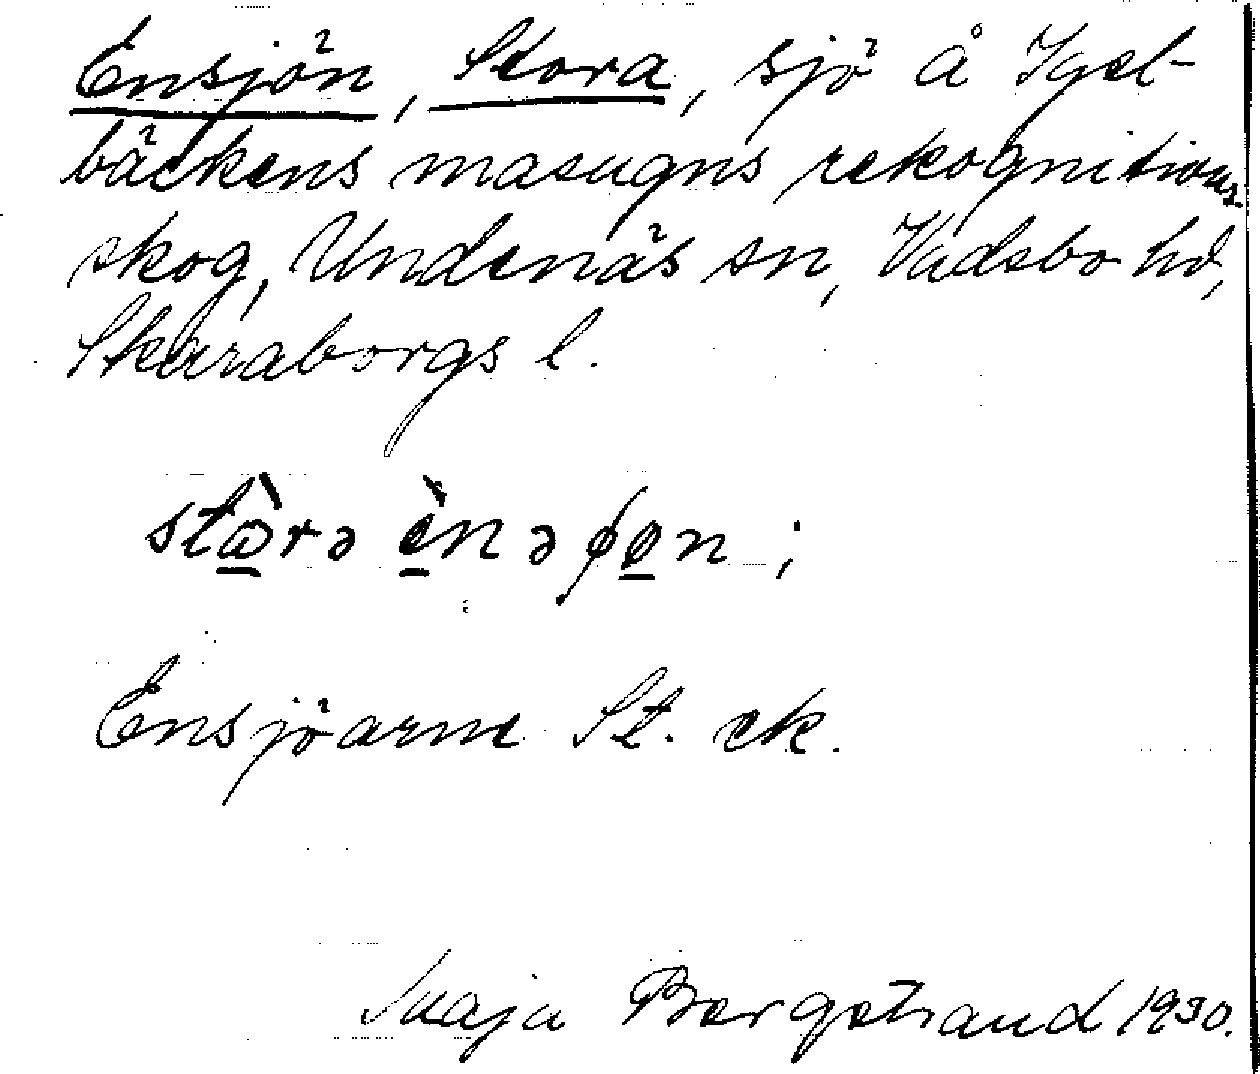 Ensjön, Stora, sjö å Igel-
bäckens masugns rekognitions-
skog, Undenäs sn, Vadsbo hd,
Skaraborgs l.
stὼ̲rə è̲nəʃø̲n ;
Ensjöarne St. ek.
Maja Bergstrand 1930.